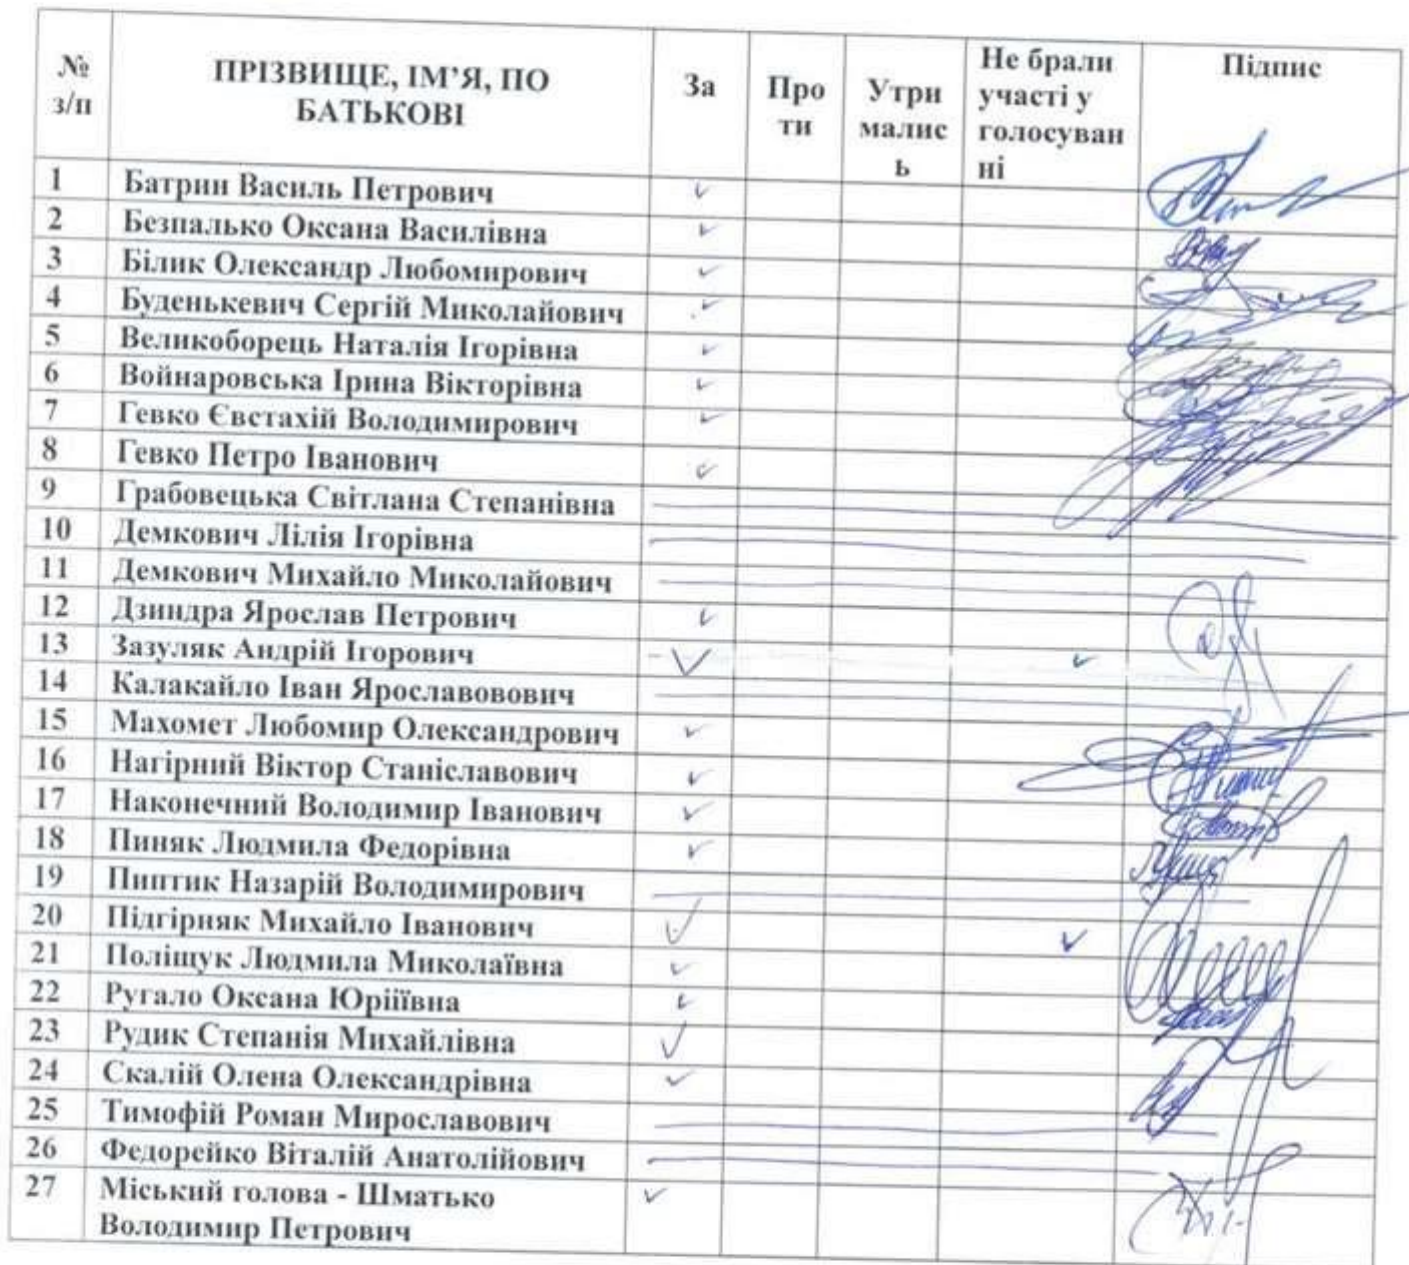 № з/п ПРІЗВИЩЕ, ІМ’Я, ПО БАТЬКОВІ За Про ти Утри малис ь Не брали участі у голосуван ні Підпис
1 Батрин Василь Петрович ✓
2 Безпалько Оксана Василівна ✓
3 Білик Олександр Любомирович ✓
4 Буденькевич Сергій Миколайович ✓
5 Великоборець Наталія Ігорівна ✓
6 Войнаровська Ірина Вікторівна ✓
7 Гевко Євстахій Володимирович ✓
8 Гевко Петро Іванович ✓
9 Грабовецька Світлана Степанівна
10 Демкович Лілія Ігорівна
11 Демкович Михайло Миколайович
12 Дзиндра Ярослав Петрович ✓
13 Зазуляк Андрій Ігорович ✓ ✓
14 Калакайло Іван Ярославовович
15 Махомет Любомир Олександрович ✓
16 Нагірний Віктор Станіславович ✓
17 Наконечний Володимир Іванович ✓
18 Пиняк Людмила Федорівна ✓
19 Пиптик Назарій Володимирович
20 Підгірняк Михайло Іванович ✓ ✓
21 Поліщук Людмила Миколаївна ✓
22 Ругало Оксана Юріїївна ✓
23 Рудик Степанія Михайлівна ✓
24 Скалій Олена Олександрівна ✓
25 Тимофій Роман Мирославович
26 Федорейко Віталій Анатолійович
27 Міський голова - Шматько ✓
Володимир Петрович